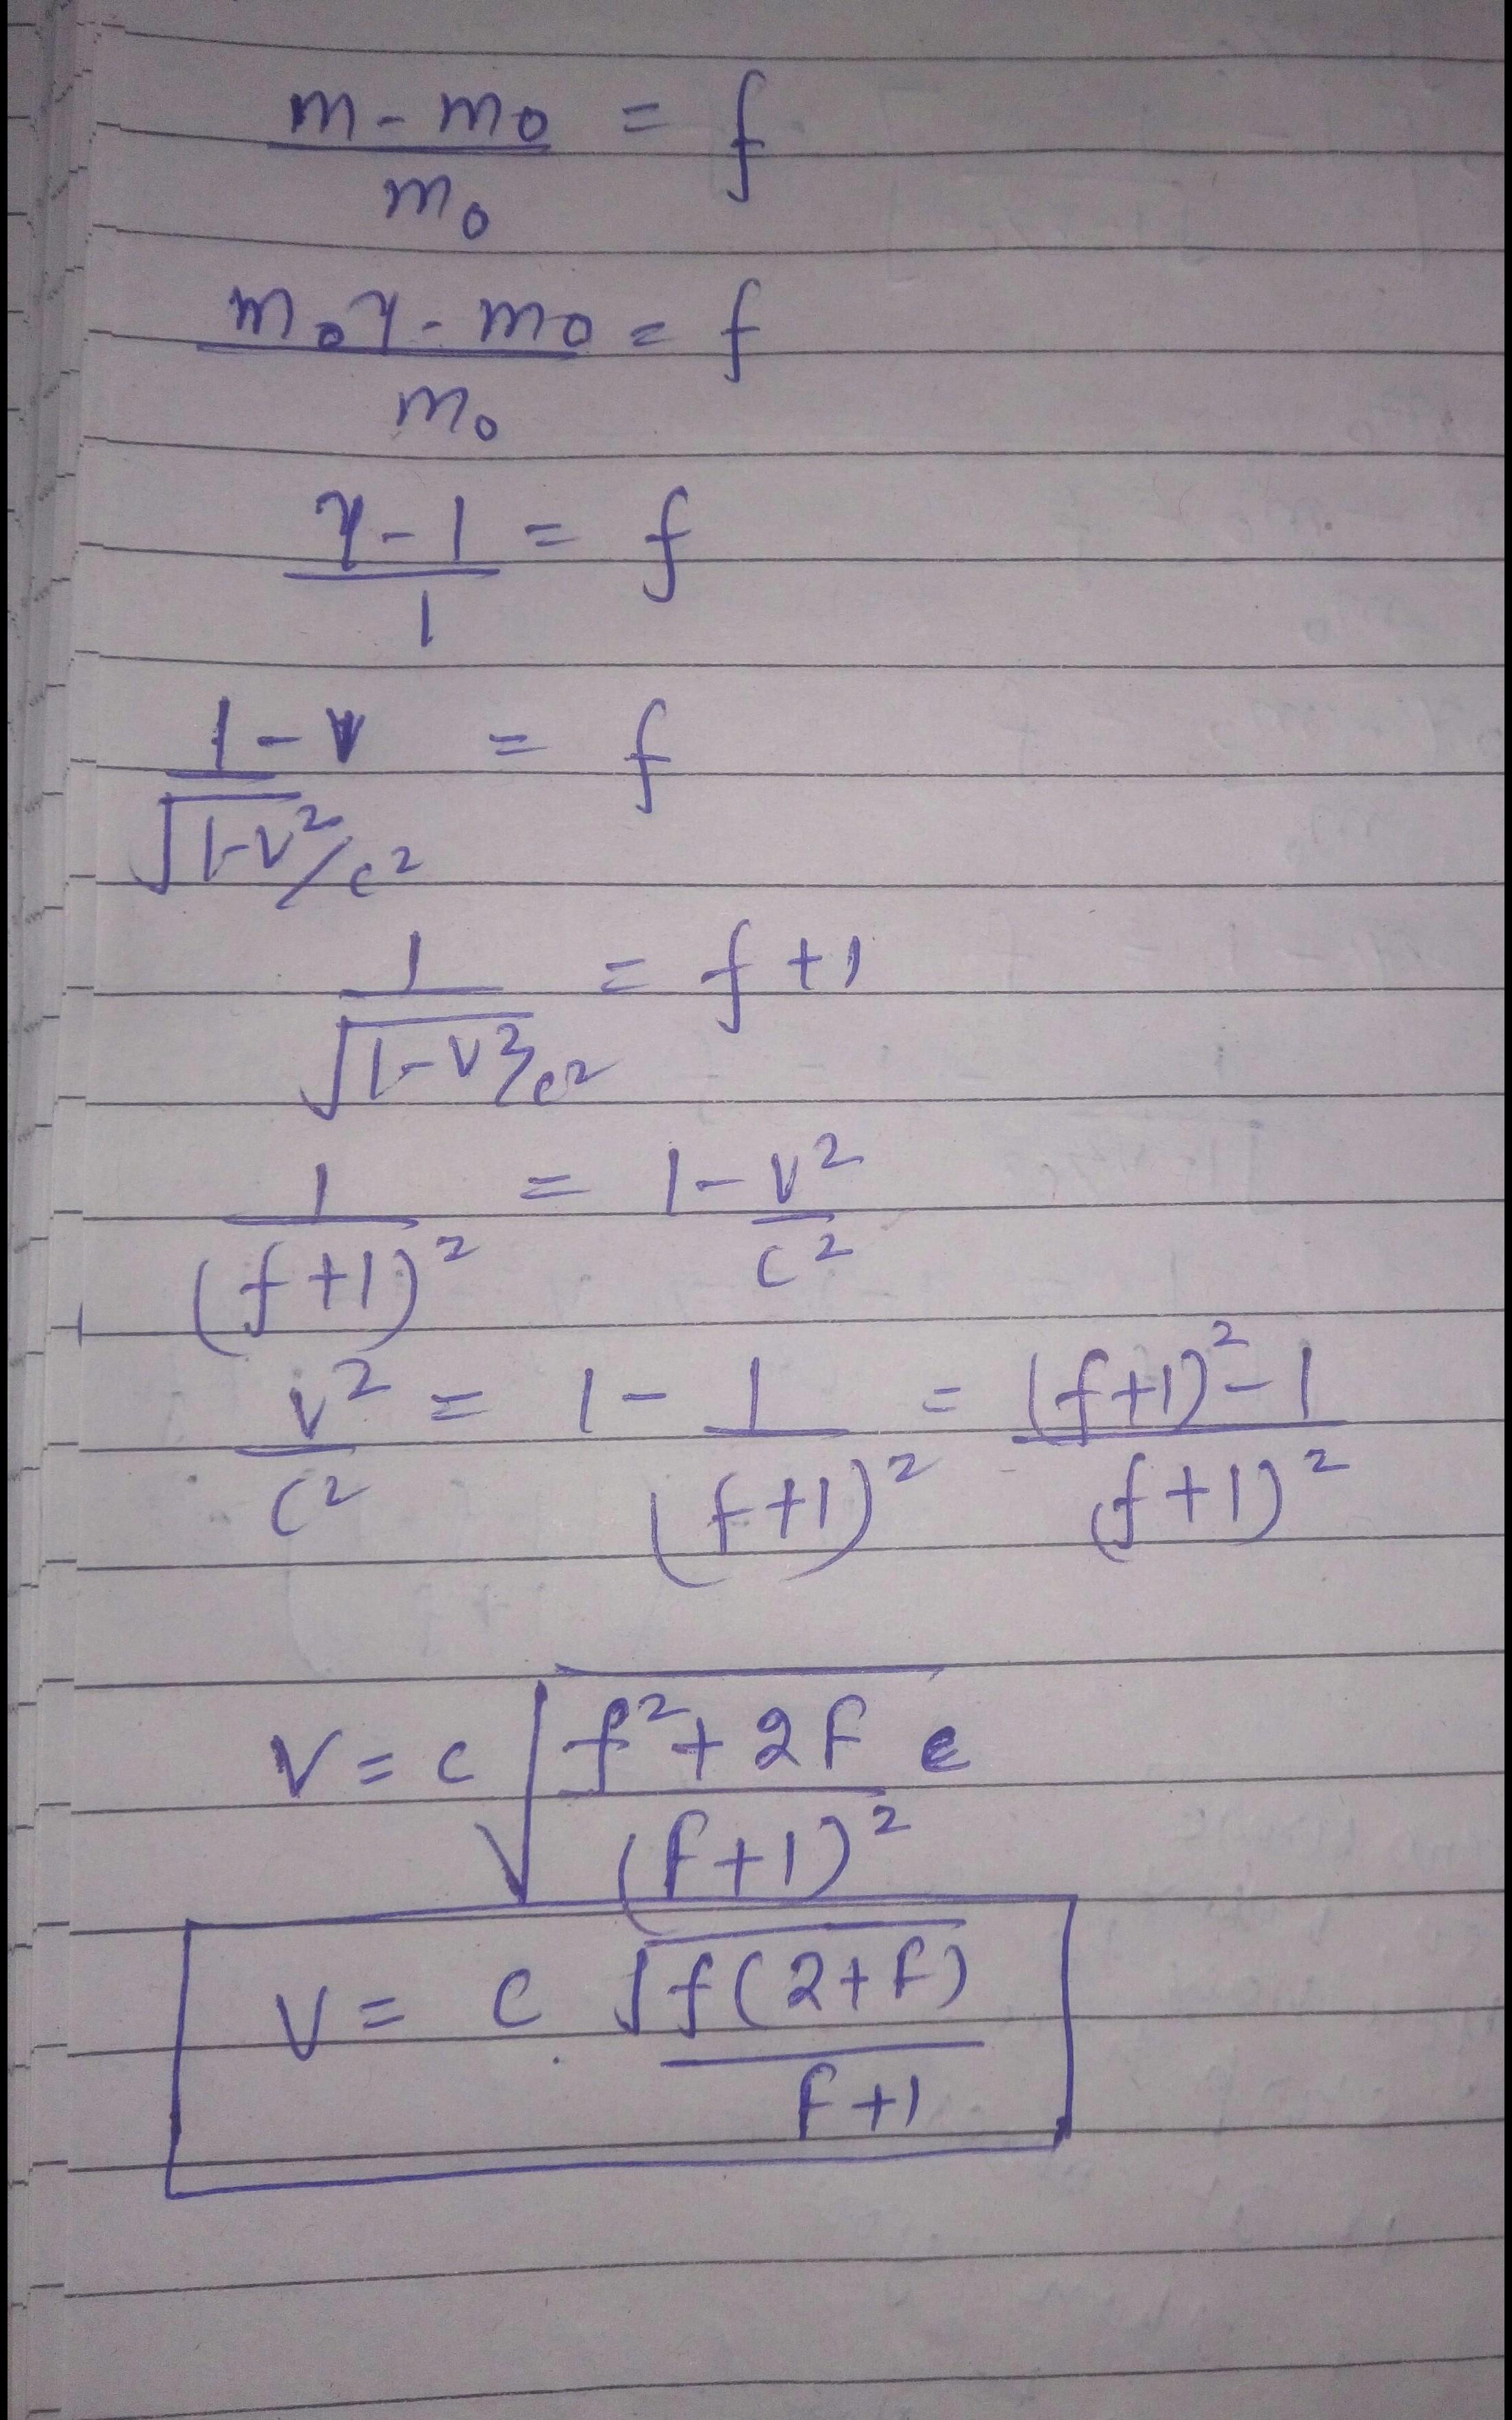 m - m₀ / m₀ = f
m₀γ - m₀ / m₀ = f
γ - 1 / 1 = f
1 - v / √1-v²/c² = f
1 / √1-v²/c² = f + 1
1 / (f+1)² = 1 - v² / c²
v² / c² = 1 - 1 / (f+1)² = (f+1)² - 1 / (f+1)²
V = c √f² + 2f / (f+1)²
V = c √f(2+f) / f+1